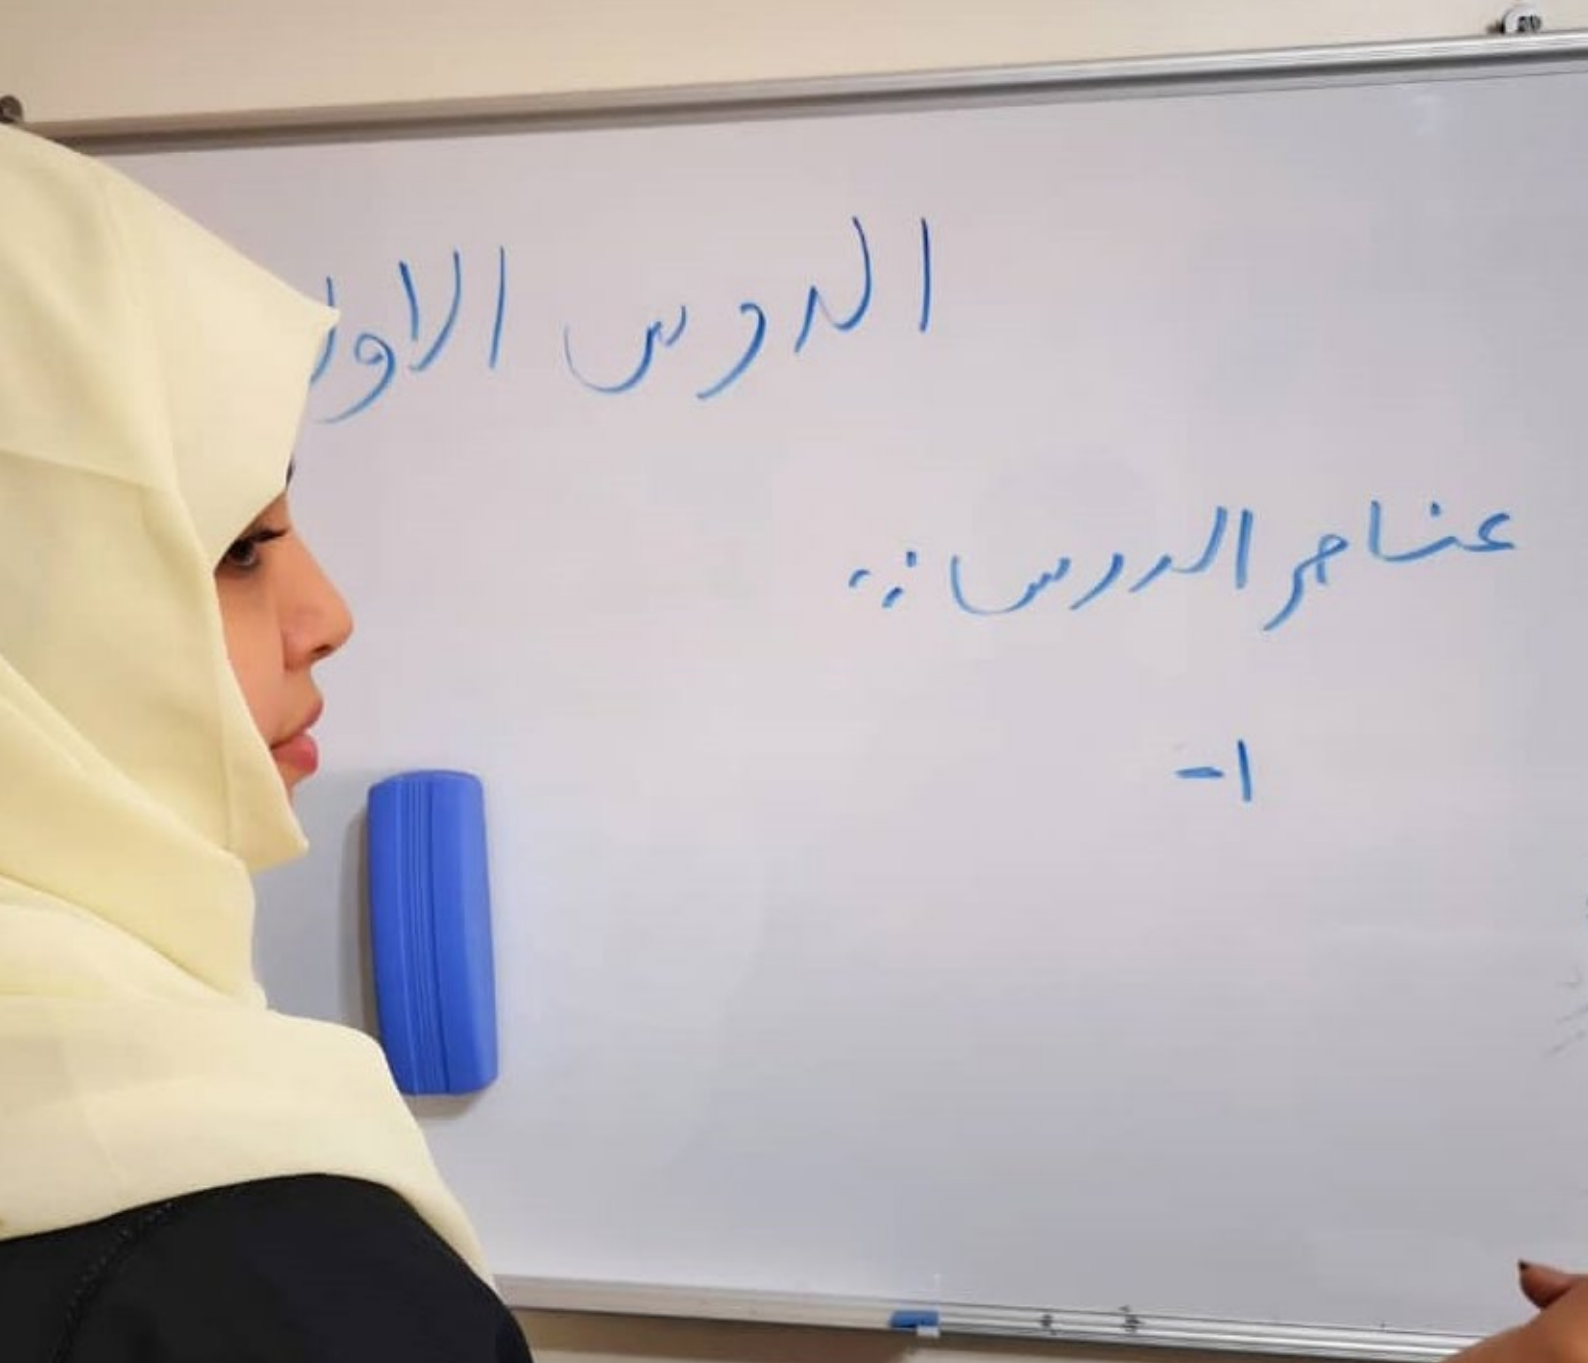 الدرس الاول
عناصر الدرس :-
1-